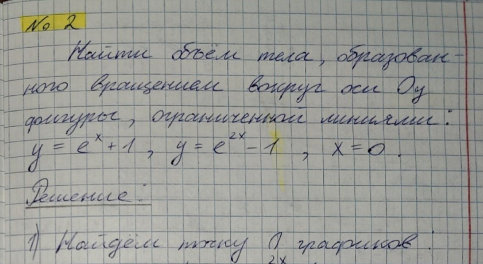 № 2
Найти объём тела, образован-
ного вращением вокруг оси Oy
фигуры, ограниченной линиями:
y = e^x + 1, y = e^{2x} - 1, x = 0.
Решение:
1) Найдём точку ∩ графиков:
2x